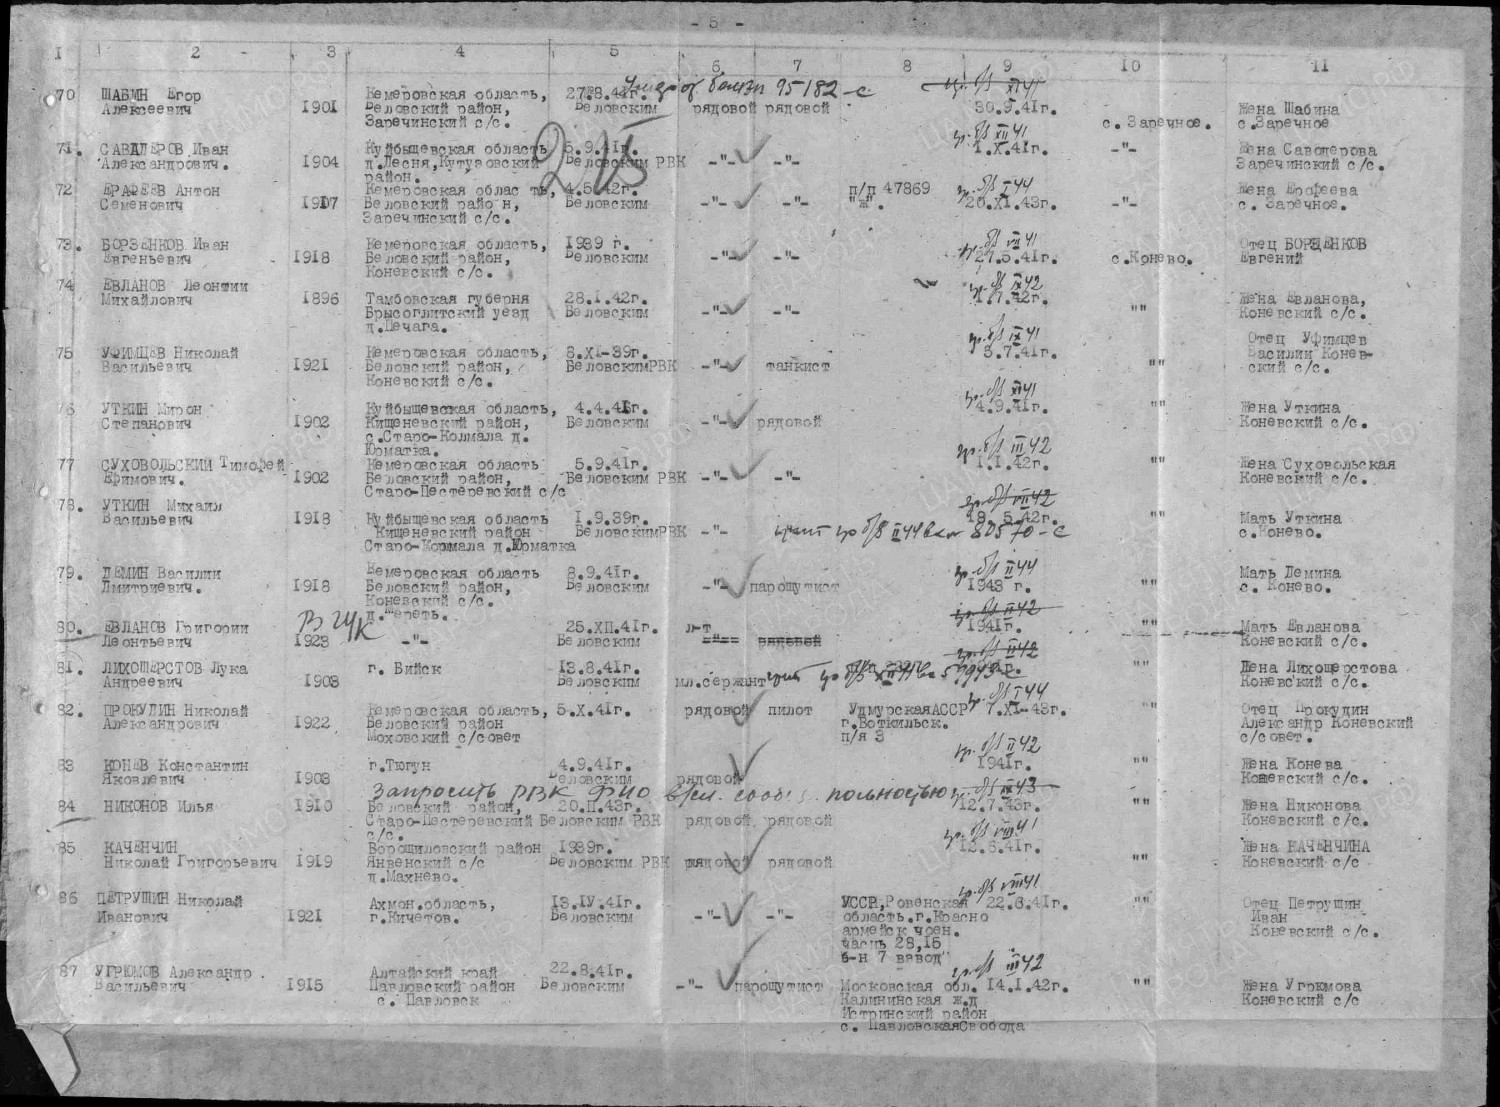 - 5 -
I 2 - 3 4 5 6 7 8 9 10 11
70 ШАБИН Егор Алексеевич 1901 Кемеровская область, Беловский район, Заречинский с/с. 27.8.41г. Беловским рядовой рядовой 30.9.41г. с.Заречное. Жена Шабина с.Заречное
умер от болезн 95182-с
71. САВДЕРОВ Иван Александрович. 1904 Куйбышевская область д.Лесня,Кутузовский район. 5.9.41г. Беловским РВК -"- пр.б/в XII 41 1.X.41г. -"- Жена Саводерова Заречинский с/с.
215
72 ЕРАФЕЕВ Антон Семенович 1917 Кемеровская область, Беловский район, Заречинский с/с. 4.5.42г. Беловским -"- -"- п/п 47869 "ж". пр.б/в I 44 20.XI.43г. -"- Жена Ерофеева с. Заречное.
73. БОРЗЕНКОВ Иван Евгеньевич 1918 Кемеровская область, Беловский район, Коневский с/с. 1939 г. Беловским -"- -"- пр.б/в VII 41 27.5.41г. с.Конево. Отец БОРЗЕНКОВ Евгений
74 ЕВЛАНОВ Леонтии Михайлович 1896 Тамбовская губерня Брысоглитский уезд д.Печага. 28.I.42г. Беловским -"- -"- пр.б/в IX 42 1.7.42г. "" Жена Евланова, Коневский с/с.
75 УФИМЦЕВ Николай Васильевич 1921 Кемеровская область, Беловский район, Коневский с/с. 8.XI-39г. БеловскимРВК -"- танкист пр.б/в IX 41 3.7.41г. "" Отец Уфимцев Василии Коневский с/с.
76 УТКИН Мирон Степанович 1902 Куйбыщевская область, Кищеневский район, с.Старо-Колмала д. Юрматка. 4.4.41г. Беловским -"- рядовой пр.б/в XI 41 4.9.41г. "" Жена Уткина Коневский с/с.
77 СУХОВОЛЬСКИЙ Тимофей Ефимович. 1902 Кемеровская область Беловский район, Старо-Пестеревский с/с 5.9.41г. Беловским РВК -"- -"- пр.б/в III 42 1.I.42г. "" Жена Суховольская Коневский с/с.
78. УТКИН Михаил Васильевич 1918 Куйбыщевская область Кищеневский район Старо-Кормала д.Юрматка 1.9.39г. БеловскимРВК -"- пр.б/в VII 42 18.5.42г. "" Мать Уткина с.Конево.
учит пр б/в II 44 вхм 80570-с
79. ДЕМИН Василии Дмитриевич. 1918 Кемеровская область Беловский район, Коневский с/с. д.Шереть. 8.9.41г. Беловским -"- парошутист пр.б/в II 44 1943 г. "" Мать Демина с. Конево.
В ГУК
80. ЕВЛАНОВ Григории Леонтьевич 1923 -"- 25.XII.41г. Беловским л-т рядовой пр.б/в II 42 1941г. "" Мать Евланова Коневский с/с.
81. ЛИХОШЕРСТОВ Лука Андреевич 1903 г. Бийск 13.8.41г. Беловским мл.сержант пр.б/в II 42 "" Жена Лихошерстова Коневский с/с.
82. ПРОКУДИН Николай Александрович 1922 Кемеровская область, Беловский район Моховский с/совет 5.X.41г. рядовой пилот УдмурскаяАССР г.Воткильск. п/я 3 пр.б/в I 44 7.XI-43г. "" Отец Прокудин Александр Коневский с/совет.
83 КОНЕВ Константин Яковлевич 1903 г.Тюгун 4.9.41г. Беловским рядовой пр.б/в II 42 1941г. "" Жена Конева Коневский с/с.
Запросить РВК ФИО всл. сообщ. полностью
84 НИКОНОВ Илья 1910 Беловский район, Старо-Пестеревский с/с. 20.II.43г. Беловским РВК рядовой рядовой пр.б/в IX 43 12.7.43г. "" Жена Никонова Коневский с/с.
85 КАЧЕНЧИН Николай Григорьевич 1919 Ворошиловский район Янвенский с/с д.Махнево. 1939г. Беловским РВК рядовой рядовой пр.б/в VIII 41 12.6.41г. "" Жена КАЧЕНЧИНА Коневский с/с.
86 ПЕТРУШИН Николай Иванович 1921 Ахмол.область, г.Кичетов. 13.IV.41г. Беловским -"- -"- УССР,Ровенская область.г.Красно армейск чоен. часнь 28,15 б-н 7 взвод" пр.б/в VIII 41 22.6.41г. "" Отец Петрушин Иван Коневский с/с.
87 УГРЮМОВ Александр Васильевич 1915 Алтайский край Павловский район с. Павловск 22.8.41г. Беловским -"- парошутист Московская обл. Калининская ж.д Истринский район с. ПавловскаяСвобода пр.б/в III 42 14.I.42г. "" Жена Угрюмова Коневский с/с